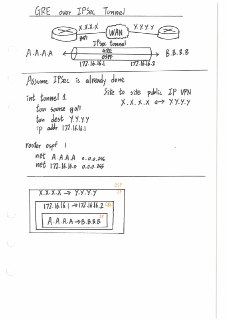 GRE over IPSec Tunnel
X.X.X.X
Y.Y.Y.Y
WAN
IPSec tunnel
A.A.A.A
GRE
OSPF
B.B.B.B
172.16.16.1
172.16.16.2
Assume IPSec is already done
Site to site public IP VPN
X.X.X.X ↔ Y.Y.Y.Y
int tunnel 1
tun source
tun dest Y.Y.Y.Y
ip addr 172.16.16.1
router ospf 1
net A.A.A.A
net 172.16.16.0
X.X.X.X → Y.Y.Y.Y
172.16.16.1 → 172.16.16.2
A.A.A.A → B.B.B.B